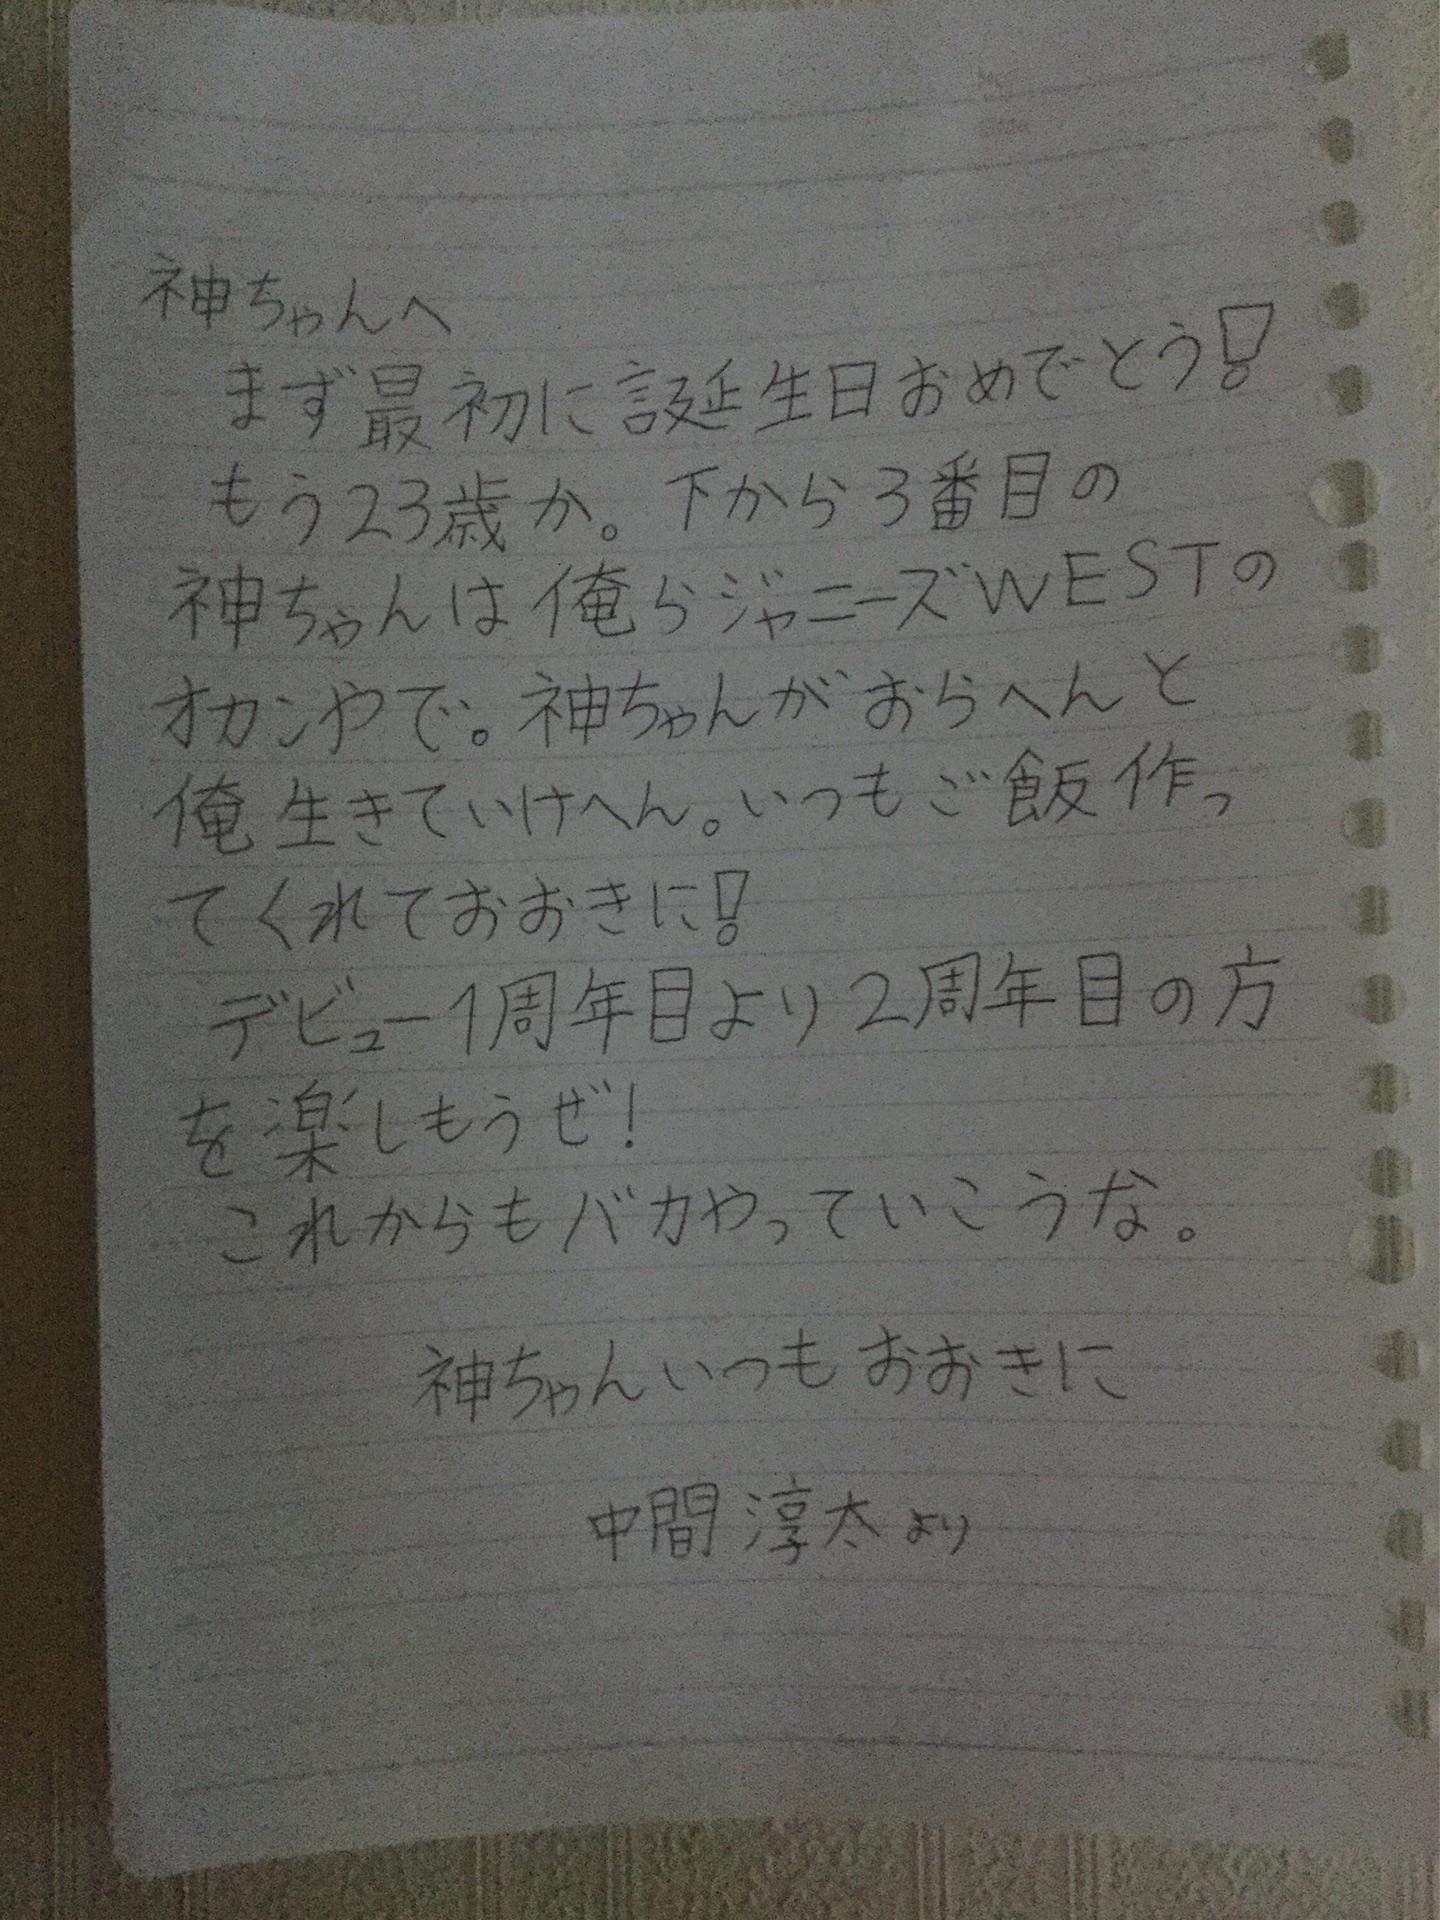 神ちゃんへ
まず最初に誕生日おめでとう!
もう23歳か。下から3番目の
神ちゃんは俺らジャニーズWESTの
オカンやで。神ちゃんがおらへんと
俺生きていけへん。いつもご飯作っ
てくれておおきに!
デビュー1周年目より2周年目の方
を楽しもうぜ!
これからもバカやっていこうな。
神ちゃんいつもおおきに
中間淳太より